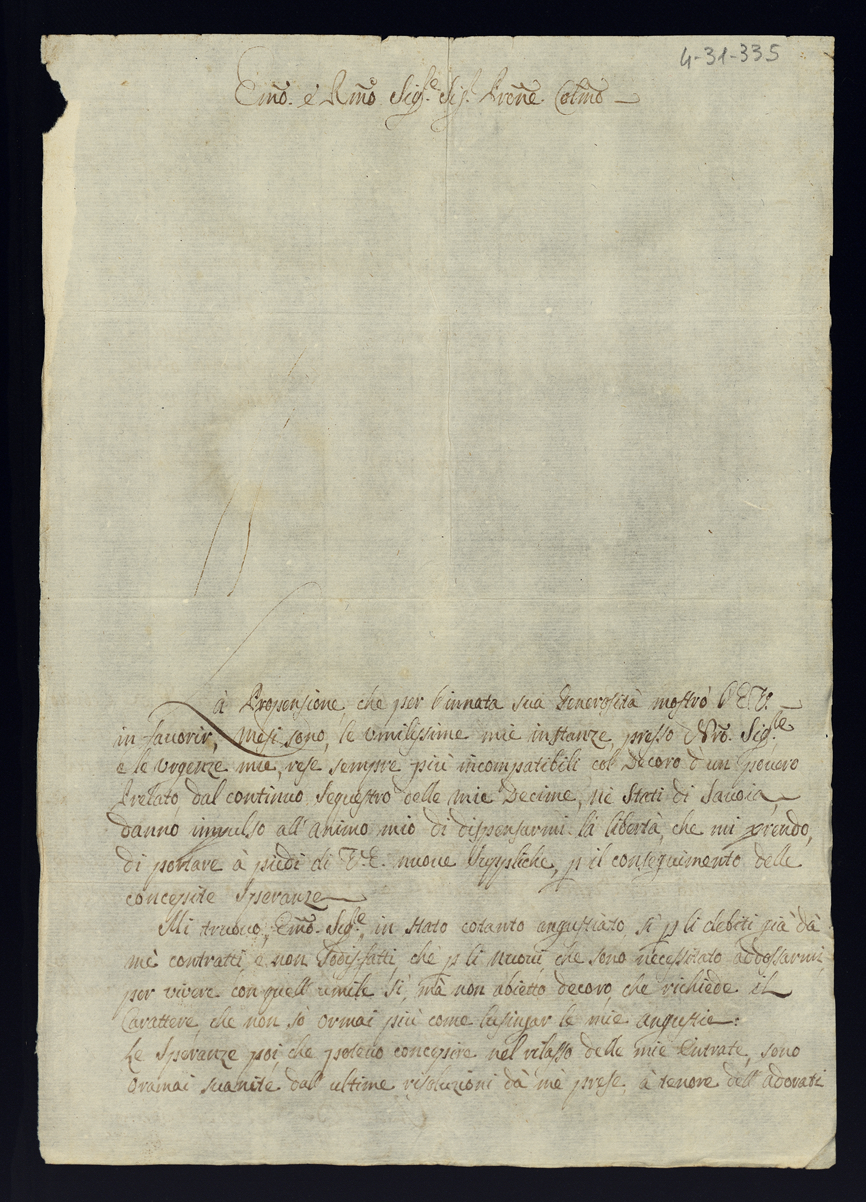 4-31-335
Emo. è Rmo Sigre. Sig. Prone Colmo
La Propensione, che per l'innata sua Generosità mostrò l'E.V.
in favorir, mesi sono, le umilissime mie instanze, presso Nro. Sigre
e le Urgenze mie, rese sempre più incompatibili col Decoro d'un povero
Prelato, dal continuo sequestro delle mie Decime, ne Stati di Savoia,
danno impulso all'animo mio di dispensarmi la libertà, che mi prendo,
di portare à piedi di V.E. nuove Suppliche, p il conseguimento delle
concepite Speranze
Mi truovo, Emo. Sigre, in stato cotanto angustiato, sì p li debiti già dà
mè contratti, e non sodisfatti, chè p li nuovi, che sono necessitato addossarmi,
per vivere con quell'umile sì, mà non abietto decoro, che richiede il
Carattere, che non sò ormai più come lusingar le mie angustie:
Le Speranze poi che potevo concepire nel rilasso delle mie Entrate, sono
oramai svanite dall'ultime risoluzioni dà mè prese, à tenore dell'adorati